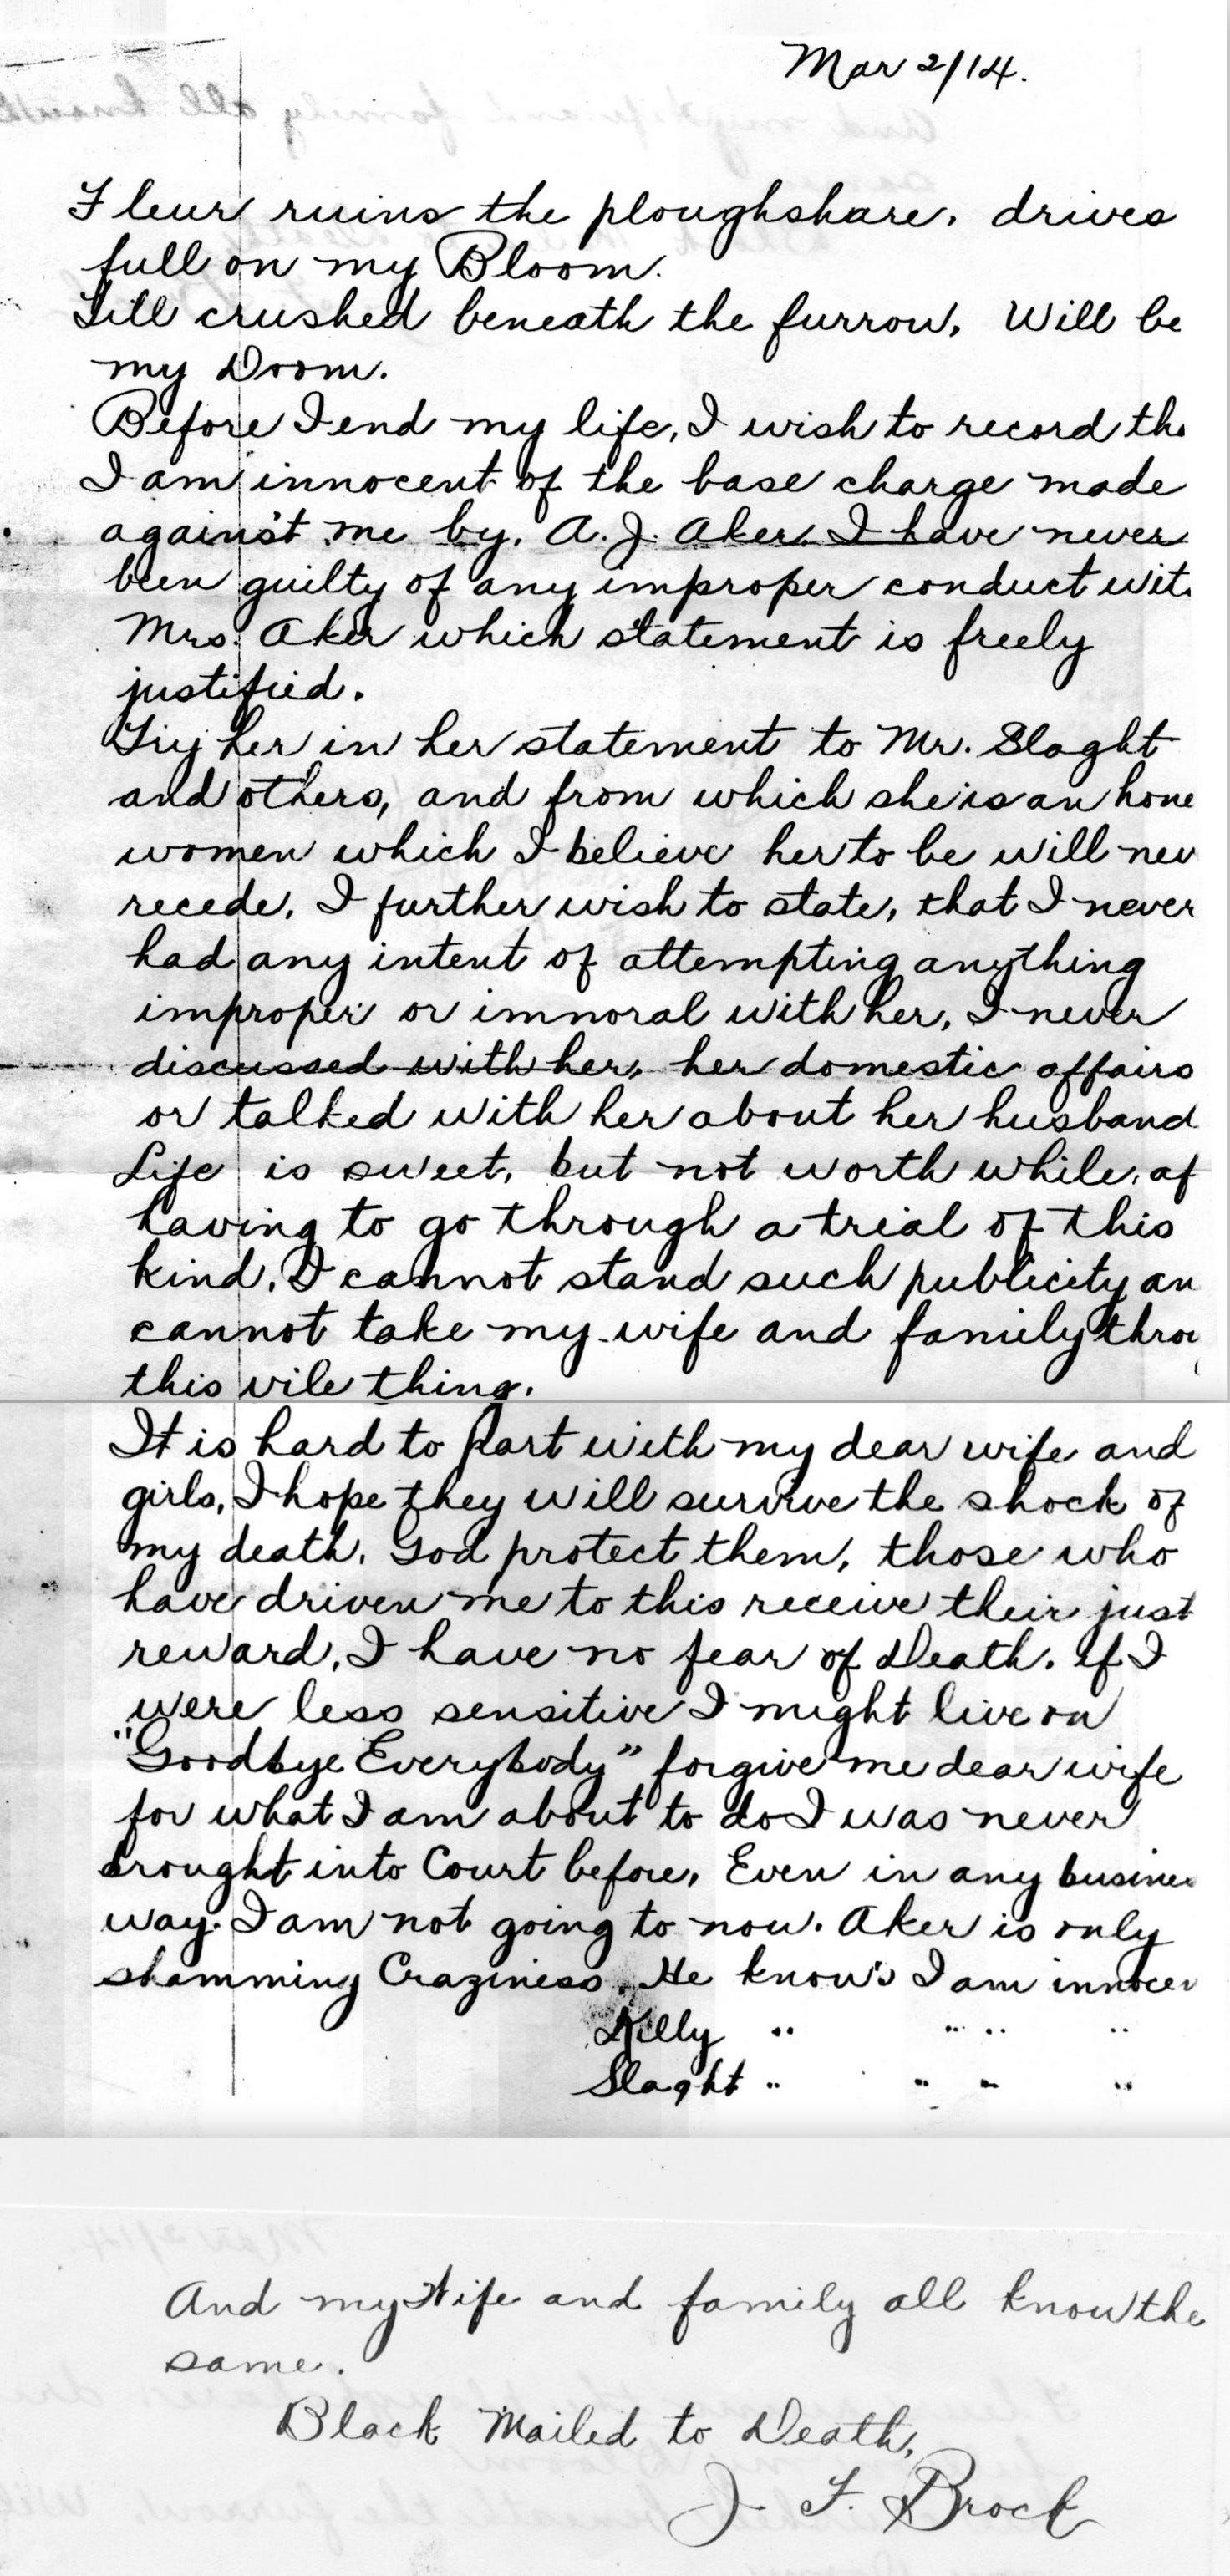 Mar 2/14.
Fleur ruins the ploughshare, drives
full on my Bloom.
Till crushed beneath the furrow, Will be
my Doom.
Before I end my life, I wish to record th
I am innocent of the base charge made
against me by, A. J. Aker. I have never
been guilty of any improper conduct wit
Mrs. Aker which statement is freely
justified.
her in her statement to Mr. Slaght
and others, and from which she is an hone
women which I believe her to be will nev
recede. I further wish to state, that I never
had any intent of attempting anything
improper or immoral with her, I never
discussed with her, her domestic affairs
or talked with her about her husband
Life is sweet, but not worth while, af
having to go through a trial of this
kind, I cannot stand such publicity an
cannot take my wife and family throu
this vile thing.
It is hard to part with my dear wife and
girls, I hope they will survive the shock of
my death. God protect them, those who
have driven me to this receive their just
reward, I have no fear of Death. If I
were less sensitive I might live on
"Goodbye Everybody" forgive me dear wife
for what I am about to do I was never
brought into Court before, Even in any busines
way. I am not going to now. Aker is only
shamming Craziness. He know's I am innocen
Kelly " " " "
Slaght " " " "
And my Wife and family all know the
same.
Black Mailed to Death,
J. F. Brock